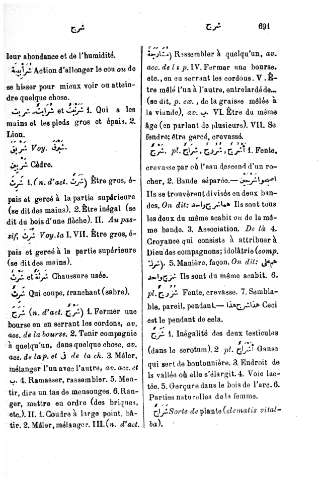 شرج شرج 691
leur abondance et de l'humidité.
Action d'allonger le cou ou de
se hisser pour mieux voir ou attein-
dre quelque chose.
1. Qui a les
mains et les pieds gros et épais. 2.
Lion.
Voy.
Cèdre.
1. (n. d'act. ) Être gros, é-
pais et gercé à la partie supérieure
(se dit des mains). 2. Être inégal (se
dit du bois d'une flèche). II. Au pas-
sif, Voy. la I, VII. Être gros, é-
pais et gercé à la partie supérieure
(se dit des mains).
Chaussure usée.
Qui coupe, tranchant (sabre).
(n. d'act. ) 1. Fermer une
bourse en en serrant les cordons, av.
acc. de la bourse. 2. Tenir compagnie
à quelqu'un, dans quelque chose, av.
acc. de la p. et في de la ch. 3. Mêler,
mélanger l'un avec l'autre, av. acc. et
ب. 4. Ramasser, rassembler. 5. Men-
tir, dire un tas de mensonges. 6. Ran-
ger, mettre en ordre (des briques,
etc.). II. 1. Coudre à large point, bâ-
tir. 2. Mêler, mélanger. III. (n. d'act.
) Ressembler à quelqu'un, av.
acc. de la p. IV. Fermer une bourse,
etc., en en serrant les cordons. V. Ê-
tre mêlé l'un à l'autre, entrelardé de...
(se dit, p. ex., de la graisse mêlée à
la viande), av. ب. VI. Être du même
âge (en parlant de plusieurs). VII. Se
fendre; être gercé, crevassé.
شرج, pl. 1. Fente,
crevasse par où l'eau descend d'un ro-
cher. 2. Bande séparée.—
Ils se trouvèrent divisés en deux ban-
des. On dit: Ils sont tous
les deux du même acabit ou de la mê-
me bande. 3. Association. De là 4.
Croyance qui consiste à attribuer à
Dieu des compagnons; idolâtrie (comp.
). 5. Manière, façon, On dit:
Ils sont du même acabit. 6.
pl. Fente, crevasse. 7. Sembla-
ble, pareil, pendant.— Ceci
est le pendant de cela.
1. Inégalité des deux testicules
(dans le scrotum). 2 pl. Ganse
qui sert de boutonnière. 3. Endroit de
la vallée où elle s'élargit. 4. Voie lac-
tée. 5. Gerçure dans le bois de l'arc. 6.
Parties naturelles de la femme.
Sorte de plante (clematis vital-
ba).